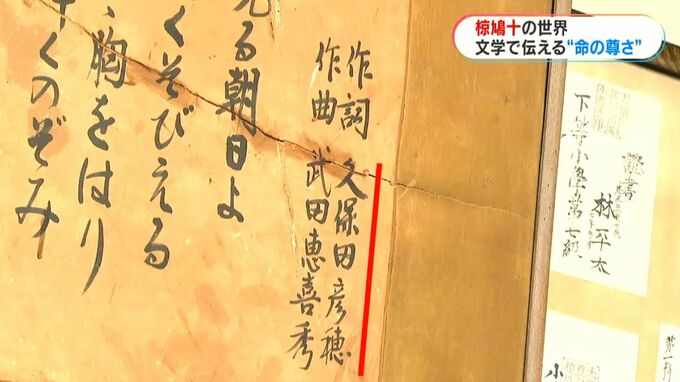 椋鳩十の世界
文学で伝える“命の尊さ”
作詞 久保田彦穂
作曲 武田恵喜秀
る朝日よ
くそびえる
胸をはり
くのぞみ
證書
林平太
下等小學第七級